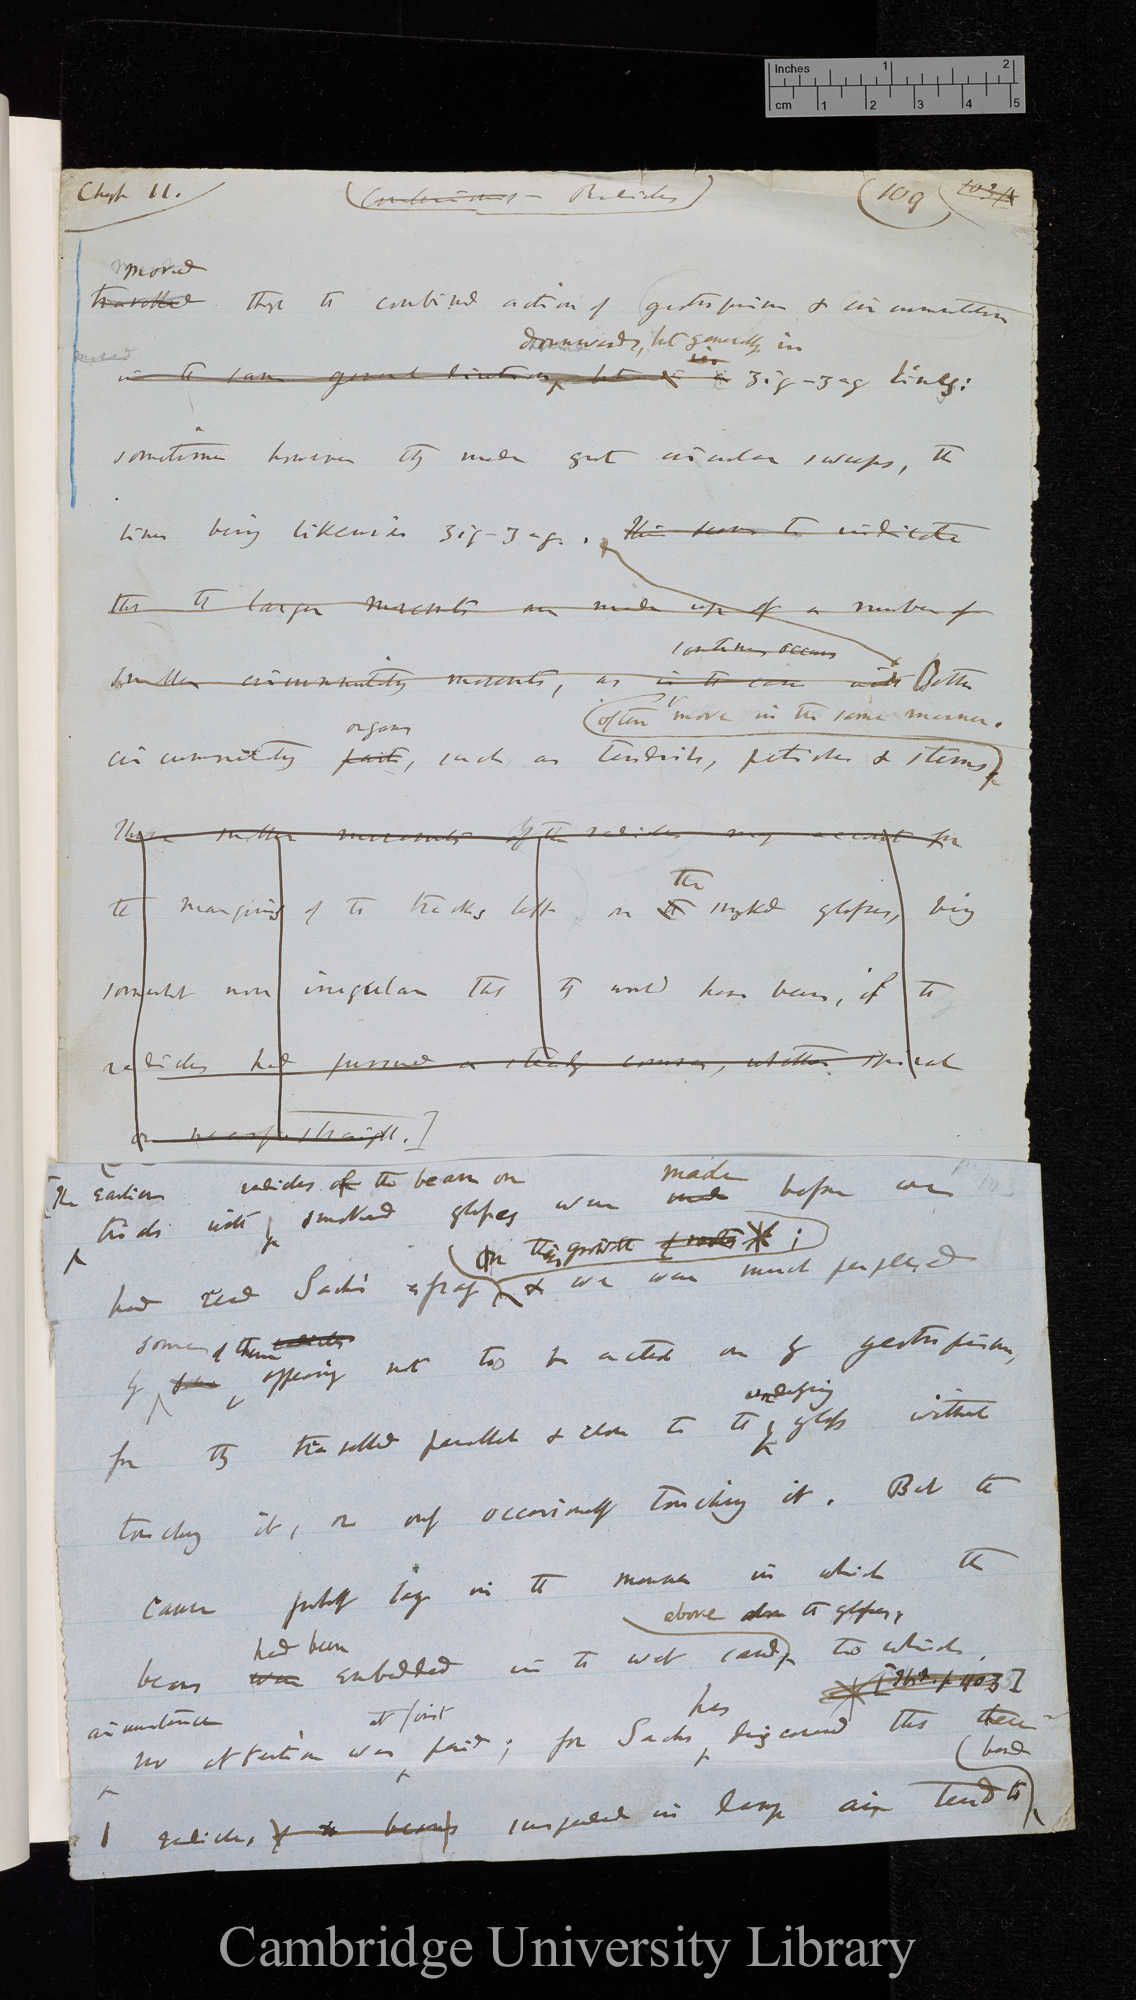 Inches 1 2
cm 1 2 3 4 5
Chapt II.
Radicles
109
moved
travelled thro the combined action of geotropism & circumnutation
downwards, but generally in
in the same general direction, but in a zig-zag lines:
sometimes however they made great circular sweeps, the
lines being likewise zig-zag. This seems to indicate
that the larger movements are made up of a number of
sometimes occurs
smaller circumnutating movements, as in the case with Other
often move in the same manner.
organs
circumnutating parts, such as tendrils, petioles & stems,
These smaller movements of the radicles may account for
the
the margins of the tracks left on the smoked glasses, being
somewhat more irregular than they would have been, if the
radicles had pursued a steady course, whether spiral
or nearly straight.]
The earlier radicles of the bean on made
trials with smoked glasses were made before we
on the growth of roots ;
had read Sachs' essay & we were much perplexed
some of them radicles
by some appearing not to be acted on by geotropism,
underlying
for they travelled parallel & close to the glass without
touching it, or only occasionally touching it. But the
cause probably lay in the manner in which the
above the glasses,
had been
beans were embedded in the wet sand, to which
[Ibid. p 403]
circumstance at first has
no attention was paid; for Sachs discovered that the
bend
radicles, of the beans suspended in damp air tend to
Cambridge University Library